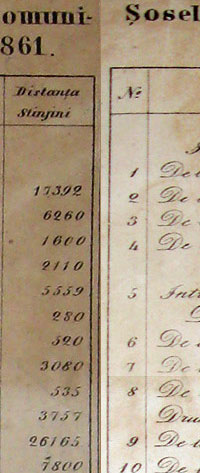 omuni-
861.
Distanța
Stînjini
17392
6260
1600
2110
5559
280
520
3080
535
3757
26165
7800
Șosel
No
1 De
2 De
3 De
4 De
5 Intr
6 De
7 De
8 De
Dru
9 De
10 De